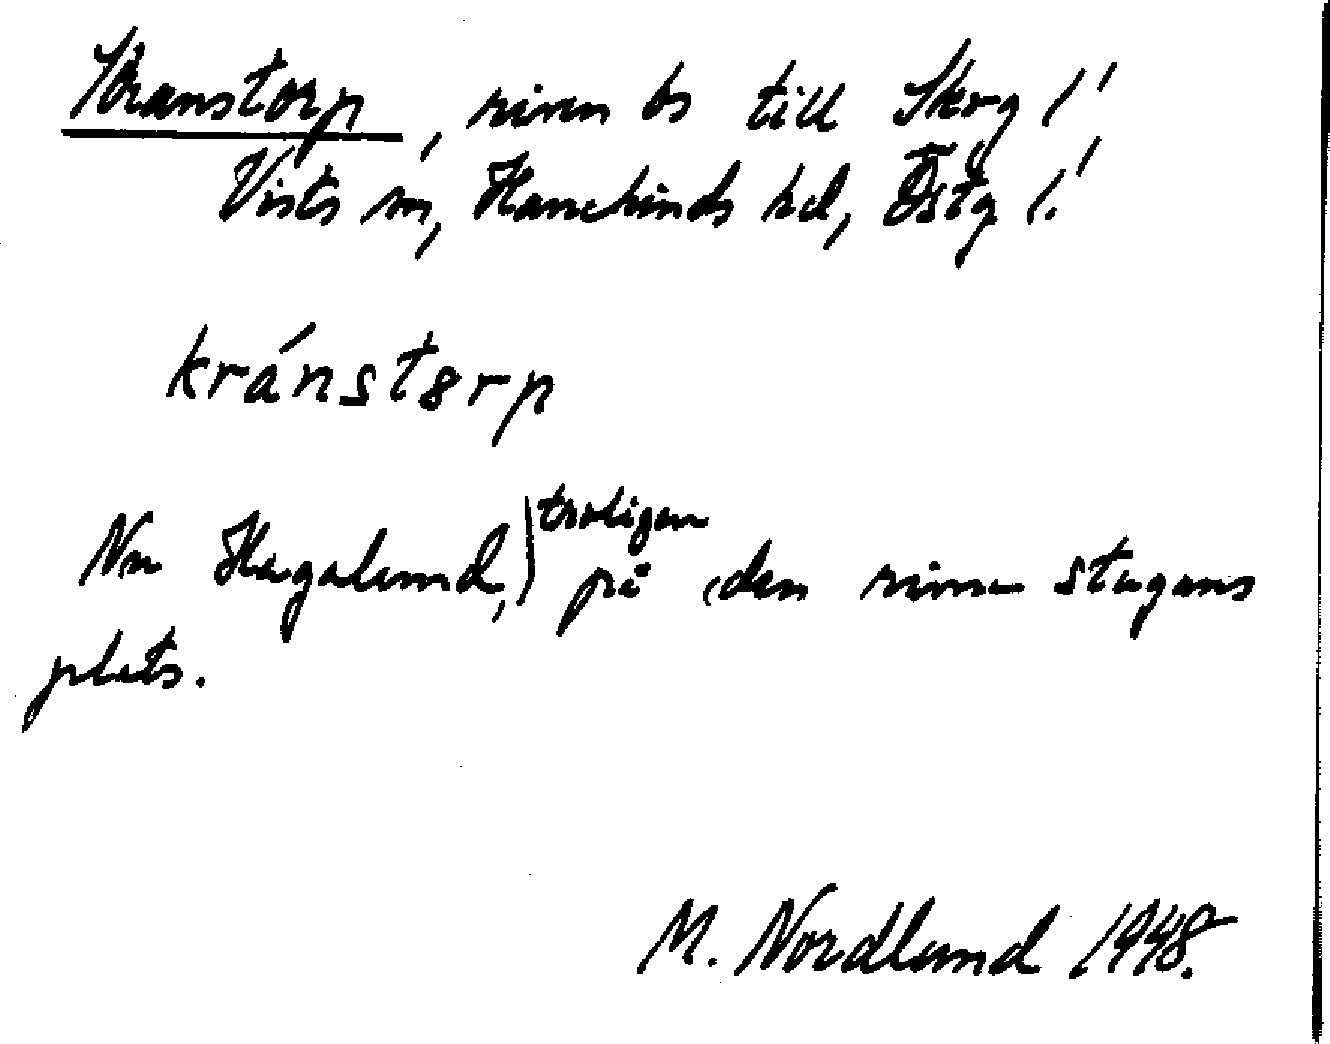 Kranstorp, riven bs till Skög 1/1
Vists sn, Hanekinds hd, Östg l.
kránstorp
Nu Hagalund, troligen på den rivna stugans
plats.
M. Nordlund 1948.